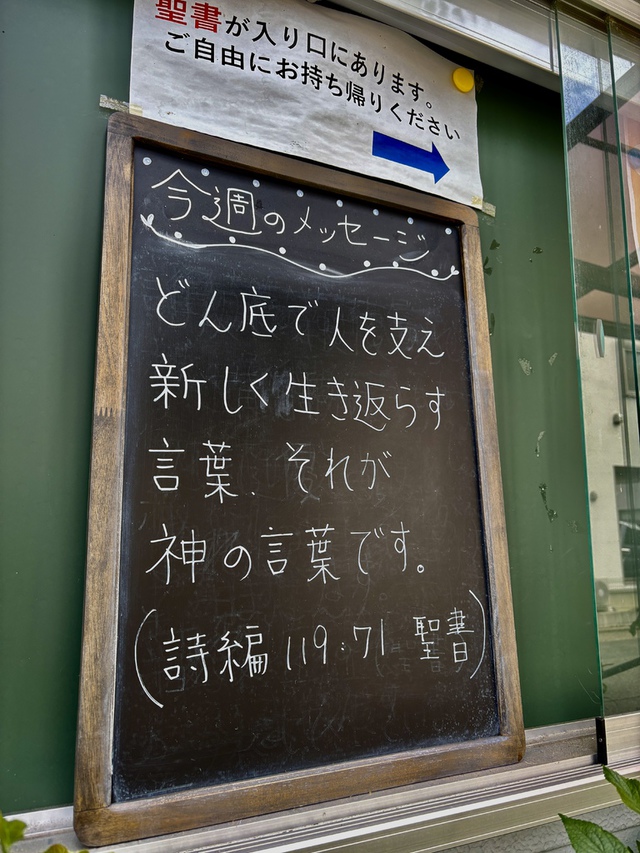 聖書が入り口にあります。
ご自由にお持ち帰りください
今週のメッセージ
どん底で人を支え
新しく生き返らす
言葉、それが
神の言葉です。
(詩編119:71 聖書)